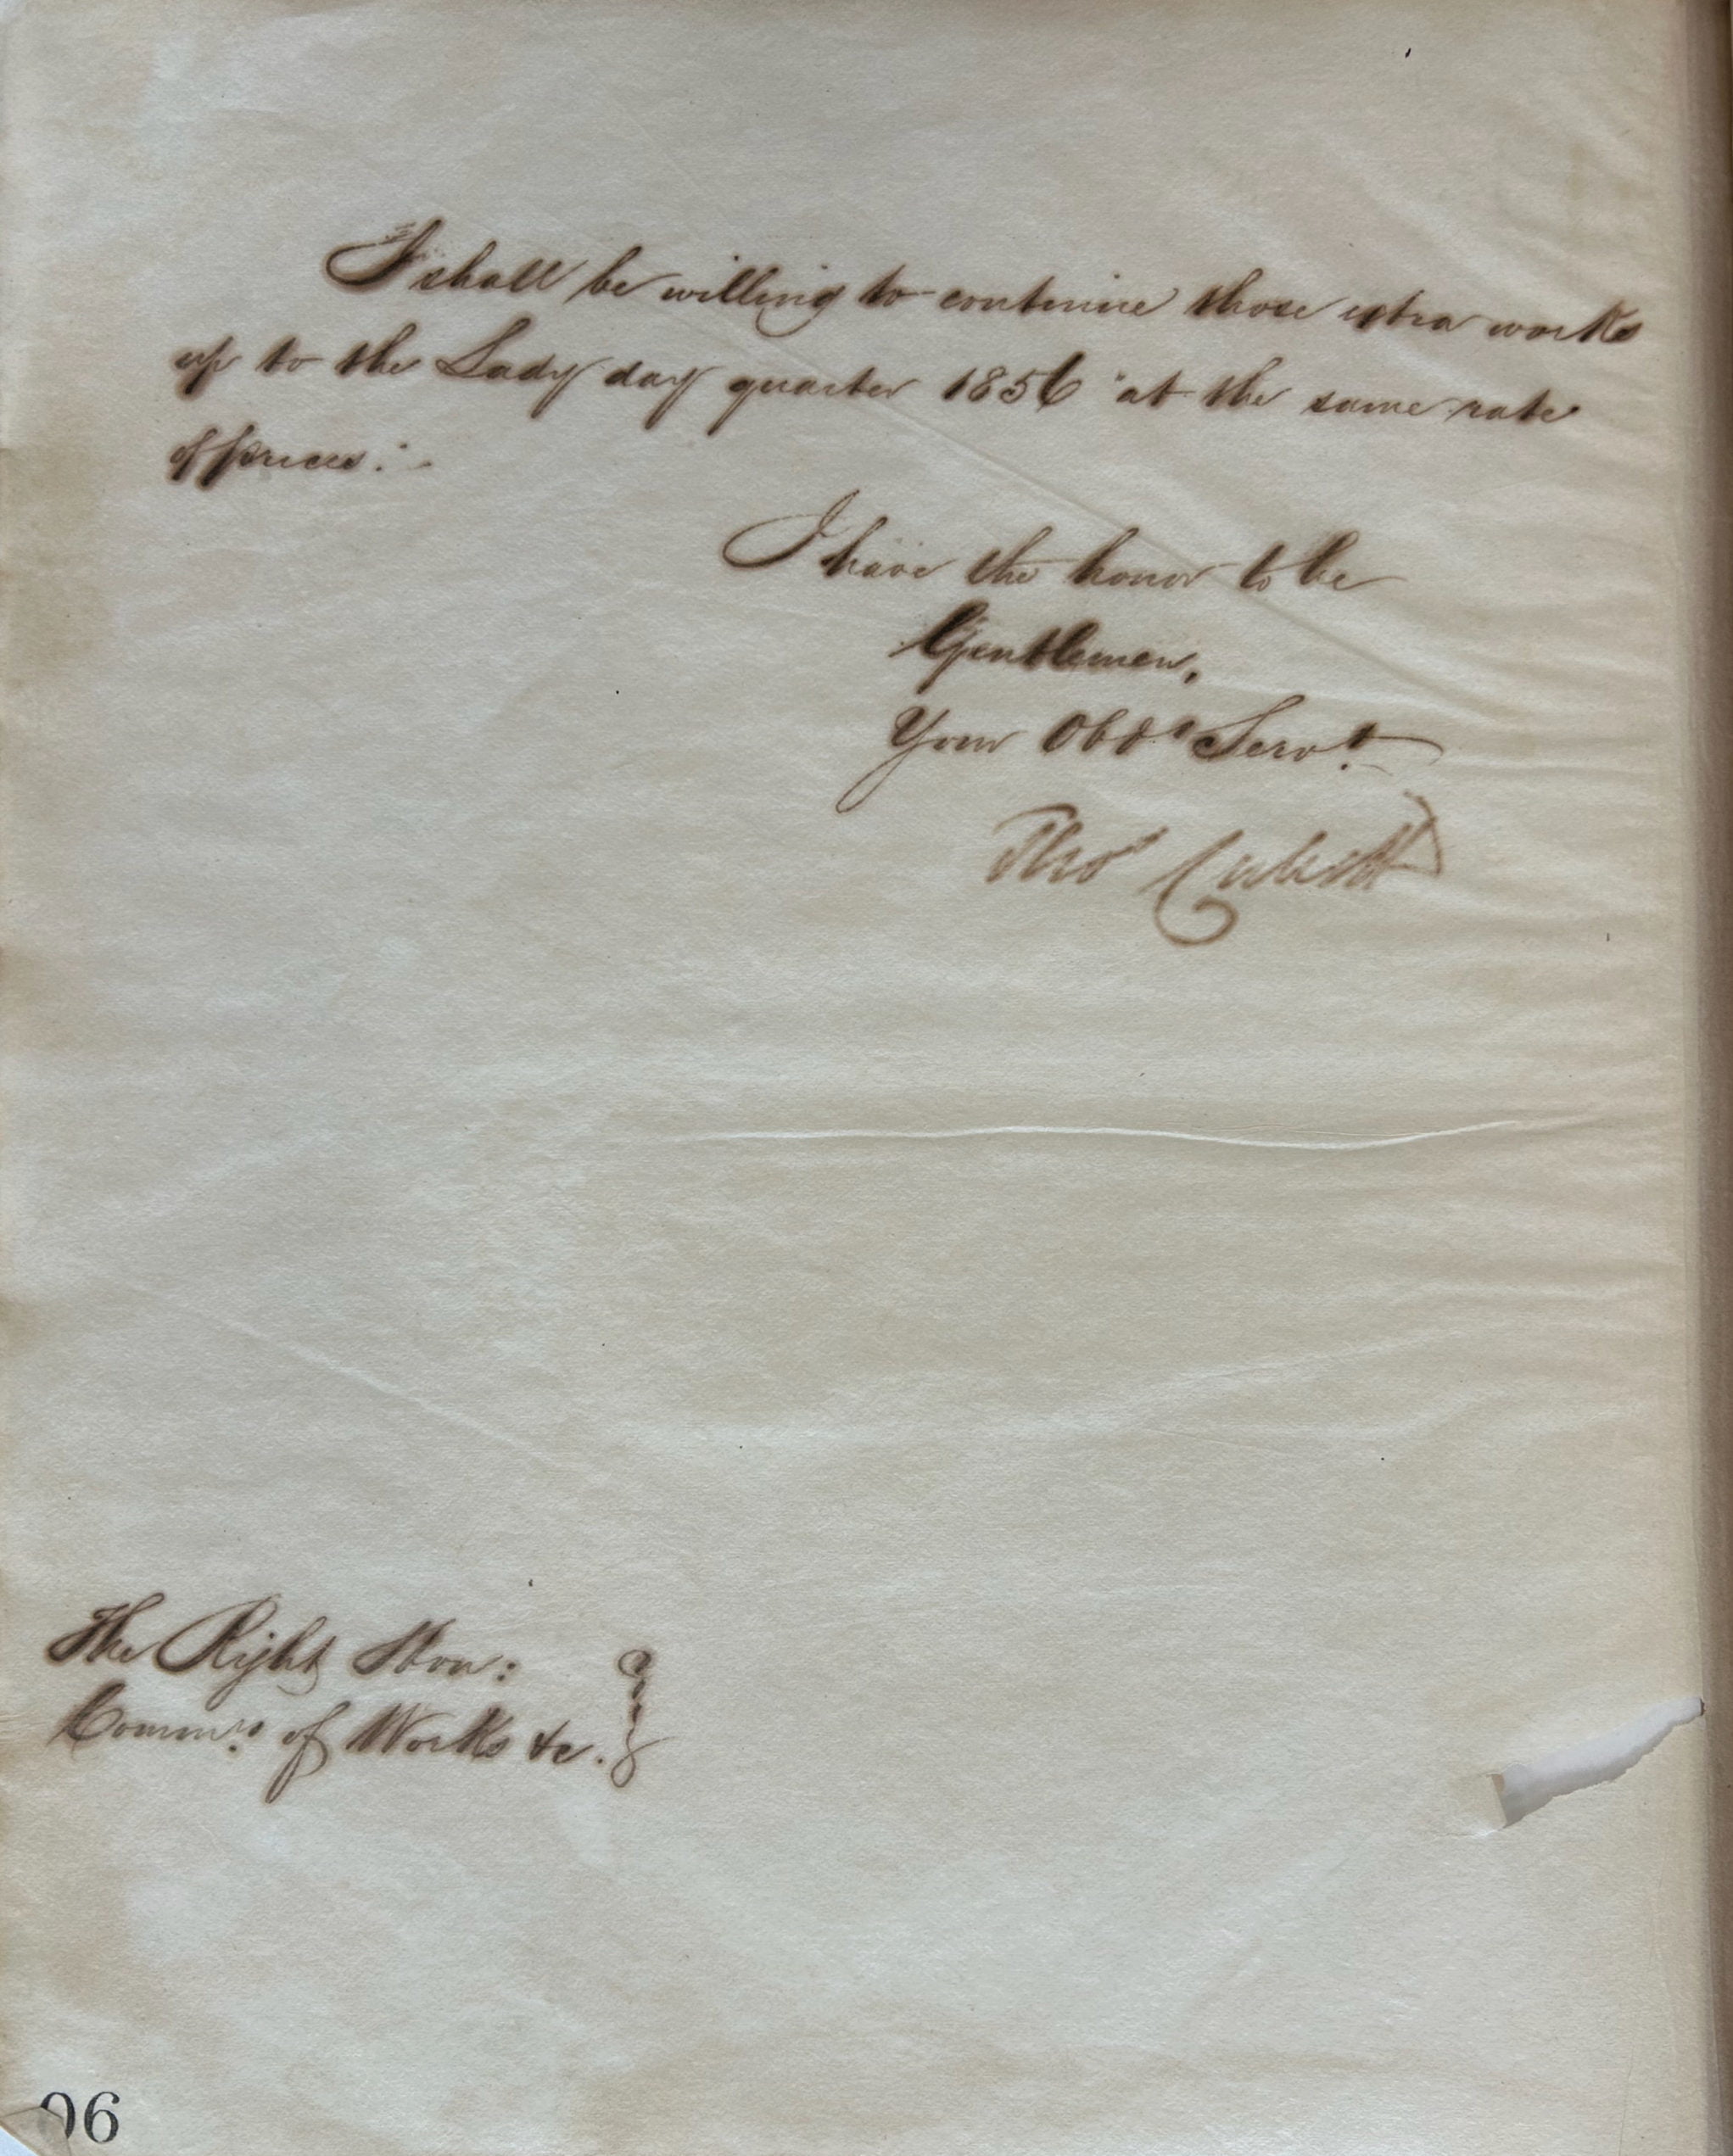 I shall be willing to continue those extra works
up to the Lady day quarter 1856 at the same rate
of prices:-
I have the honor to be
Gentlemen,
Your Obdt Servt
Thos Cubitt
The Right Hon:
Commrs of Works &c.
06